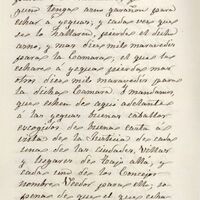 quien tenga asno garañon para
echar á yeguas; y cada vez que
se le hallaren, pierda el dicho
asno, y mas diez mil maravedis
para la Camara, el que lo
echare á yeguas pierda mas
otros diez mil maravedis para
la dicha Camara. I mandamos,
que echen de aqui adelante
á las yeguas buenos caballos
escogidos de buena casta á
vista de la Justicia de cada
una de las ciudades, villas
y lugares de Tajo allá, y
cada uno de los Concejos
nombre Veedor para ello, so
pena de que el que echar